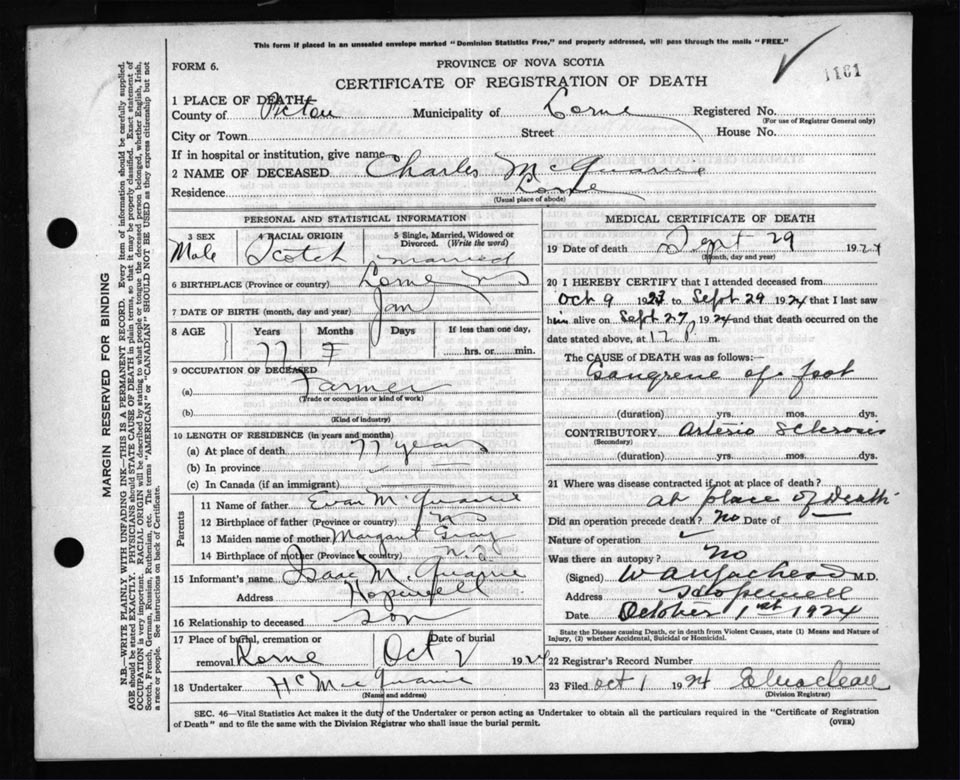 This form if placed in an unsealed envelope marked "Dominion Statistics Free," and properly addressed, will pass through the mails "FREE."
FORM 6.
PROVINCE OF NOVA SCOTIA
CERTIFICATE OF REGISTRATION OF DEATH
1161
1 PLACE OF DEATH
County of Pictou Municipality of Lorne Registered No.
(For use of Registrar General only)
City or Town Street House No.
If in hospital or institution, give name
2 NAME OF DECEASED Charles McQuarrie
Residence Lorne
(Usual place of abode)
PERSONAL AND STATISTICAL INFORMATION
3 SEX 4 RACIAL ORIGIN 5 Single, Married, Widowed or Divorced. (Write the word)
Male Scotch married
6 BIRTHPLACE (Province or country) Lorne NS
7 DATE OF BIRTH (month, day and year) Jan
8 AGE Years Months Days If less than one day,
77 hrs. or min.
9 OCCUPATION OF DECEASED
(a) Farmer
(Trade or occupation or kind of work)
(b)
(Kind of industry)
10 LENGTH OF RESIDENCE (in years and months)
(a) At place of death 77 years
(b) In province
(c) In Canada (if an immigrant)
Parents
11 Name of father Evan McQuarrie
12 Birthplace of father (Province or country) NS
13 Maiden name of mother Margaret Gray
14 Birthplace of mother (Province or country) N.S.
15 Informant's name Isaac McQuarrie
Address Hopewell
16 Relationship to deceased Son
17 Place of burial, cremation or removal Lorne Date of burial Oct 2 1924
18 Undertaker McQuarrie
(Name and address)
MEDICAL CERTIFICATE OF DEATH
19 Date of death Sept 29 1924
(Month, day and year)
20 I HEREBY CERTIFY that I attended deceased from
Oct 9 1923 to Sept 29 1924 that I last saw
him alive on Sept 27 1924 and that death occurred on the
date stated above, at 12 P m.
The CAUSE of DEATH was as follows:—
Gangrene of foot
(duration) yrs. mos. dys.
CONTRIBUTORY Arterio Sclerosis
(Secondary)
(duration) yrs. mos. dys.
21 Where was disease contracted if not at place of death?
at place of Death
Did an operation precede death? No Date of
Nature of operation
Was there an autopsy? No
(Signed) M.D.
Address Hopewell
Date October 1st 1924
State the Disease causing Death, or in death from Violent Causes, state (1) Means and Nature of
Injury, (2) whether Accidental, Suicidal or Homicidal.
22 Registrar's Record Number
23 Filed Oct 1 1924
(Division Registrar)
SEC. 46—Vital Statistics Act makes it the duty of the Undertaker or person acting as Undertaker to obtain all the particulars required in the "Certificate of Registration
of Death" and to file the same with the Division Registrar who shall issue the burial permit. (OVER)
MARGIN RESERVED FOR BINDING
N.B.—WRITE PLAINLY WITH UNFADING INK—THIS IS A PERMANENT RECORD. Every item of information should be carefully supplied.
AGE should be stated EXACTLY. PHYSICIANS should STATE CAUSE OF DEATH in plain terms, so that it may be properly classified. Exact statement of
OCCUPATION is very important. RACIAL ORIGIN will be described by stating to what people or tongue the deceased person belonged, whether English, Irish,
Scotch, French, German, Russian, Ruthenian, etc. The terms "AMERICAN" or "CANADIAN" SHOULD NOT BE USED as they express citizenship but not
a race or people. See instructions on back of Certificate.